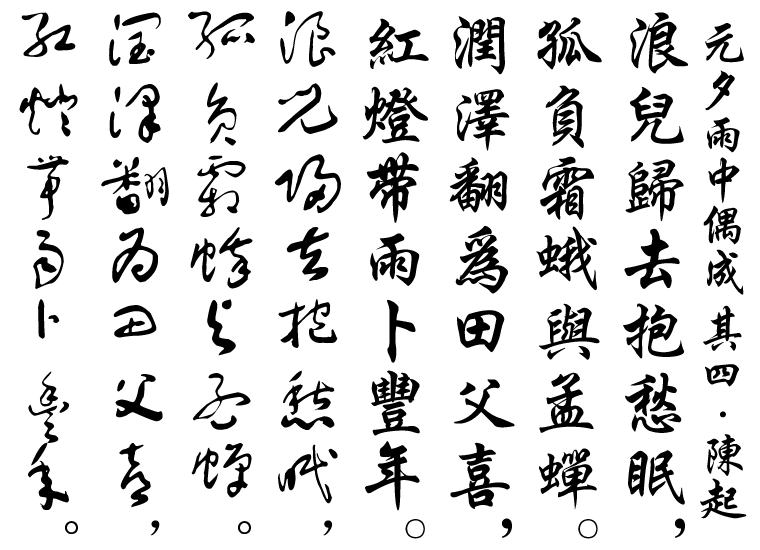 元夕雨中偶成 其四·陳起
浪兒歸去抱愁眠，
孤負霜蛾與孟蟬。
潤澤翻爲田父喜，
紅燈帶雨卜豐年。
浪兒歸去抱愁眠，
孤負霜蛾與孟蟬。
潤澤翻為田父喜，
紅燈帶雨卜豐年。